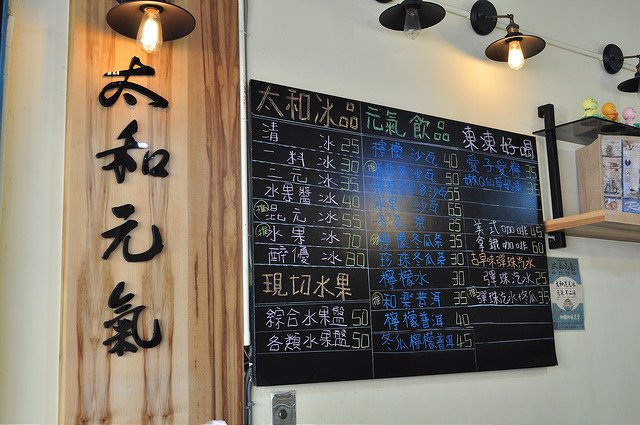 太和元氣
太和冰品
清 冰 25
二料 冰 30
三元 冰 35
水果醬冰 40
混元冰 55
水果冰 70
醉優冰 80
現切水果
綜合水果盤 50
各類水果盤 50
元氣飲品
檸檬沙瓦 40
50
55
65
25
檸檬冬瓜茶 35
珍珠冬瓜茶 30
檸檬水 30
和愛普洱 35
檸檬普洱 40
冬瓜檸檬普洱 45
東東好喝
愛子愛檸 35
35
美式咖啡 45
拿鐵咖啡 60
古早味彈珠汽水
彈珠汽水 25
彈珠汽水+冬瓜 35